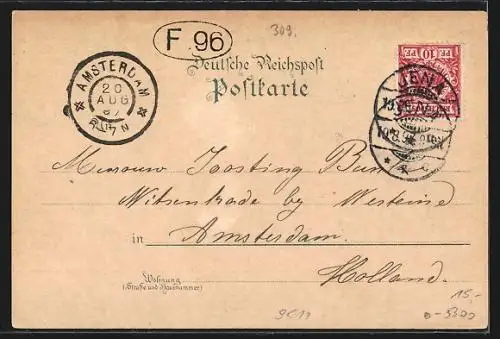 F. 96
309.
Deutsche Reichspost
Postkarte
AMSTERDAM
20
AUG
97
JENA
10
Mevrouw Joosting Bunk
Witsenkade by Westeinde
in Amsterdam.
Holland.
Wohnung
(Straße und Hausnummer)
15,-